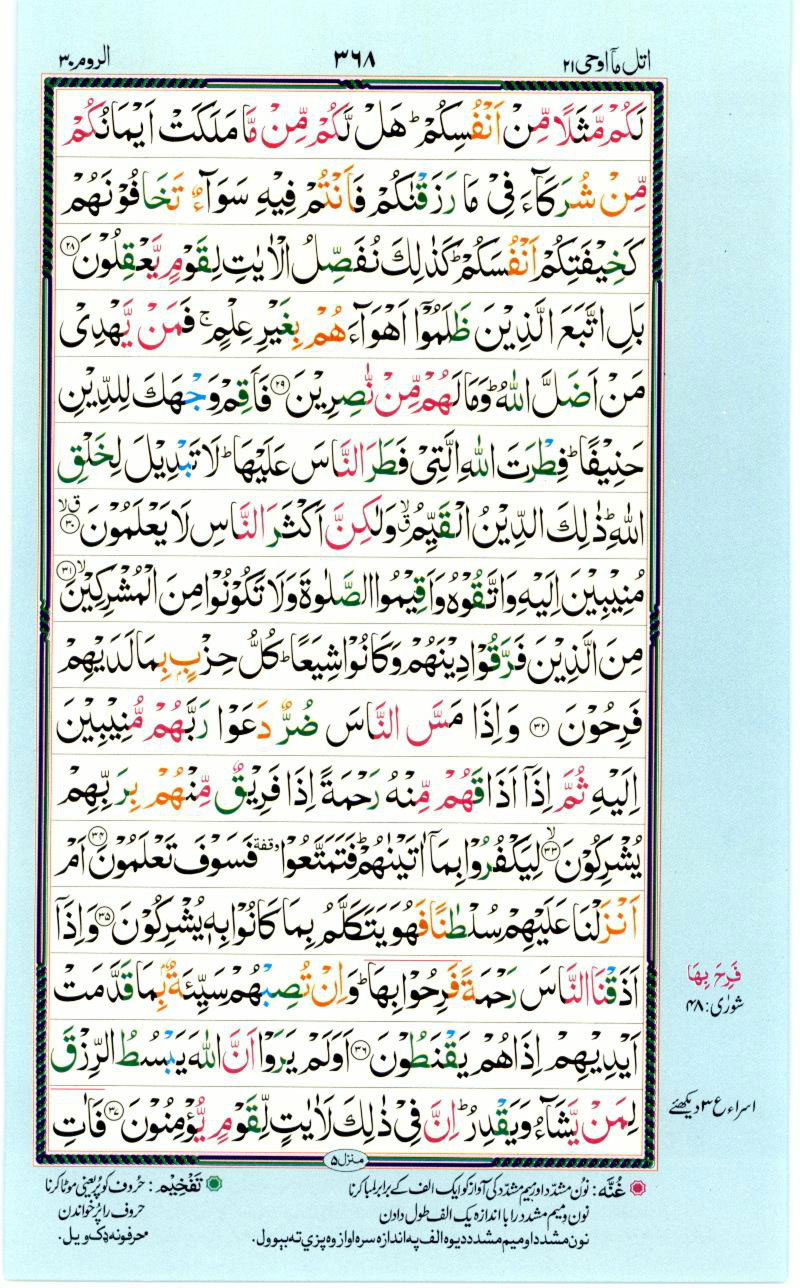 اتل ماۤ اوحی ۲۱
۳۶۸
الروم ۳۰
لَكُمْ مَّثَلًا مِّنْ اَنْفُسِكُمْ ؕ هَلْ لَّكُمْ مِّنْ مَّا مَلَكَتْ اَيْمَانُكُمْ
مِّنْ شُرَكَآءَ فِىْ مَا رَزَقْنٰكُمْ فَاَنْتُمْ فِيْهِ سَوَآءٌ تَخَافُوْنَهُمْ
كَخِيْفَتِكُمْ اَنْفُسَكُمْ ؕ كَذٰلِكَ نُفَصِّلُ الْاٰيٰتِ لِقَوْمٍ يَّعْقِلُوْنَ ۲۸
بَلِ اتَّبَعَ الَّذِيْنَ ظَلَمُوْۤا اَهْوَآءَهُمْ بِغَيْرِ عِلْمٍ ۚ فَمَنْ يَّهْدِىْ
مَنْ اَضَلَّ اللّٰهُ ؕ وَمَا لَهُمْ مِّنْ نّٰصِرِيْنَ ۲۹ فَاَقِمْ وَجْهَكَ لِلدِّيْنِ
حَنِيْفًا ؕ فِطْرَتَ اللّٰهِ الَّتِىْ فَطَرَ النَّاسَ عَلَيْهَا ؕ لَا تَبْدِيْلَ لِخَلْقِ
اللّٰهِ ؕ ذٰلِكَ الدِّيْنُ الْقَيِّمُ ۙۗ وَلٰكِنَّ اَكْثَرَ النَّاسِ لَا يَعْلَمُوْنَ ۳۰
مُنِيْبِيْنَ اِلَيْهِ وَاتَّقُوْهُ وَاَقِيْمُوا الصَّلٰوةَ وَلَا تَكُوْنُوْا مِنَ الْمُشْرِكِيْنَ ۙ ۳۱
مِنَ الَّذِيْنَ فَرَّقُوْا دِيْنَهُمْ وَكَانُوْا شِيَعًا ؕ كُلُّ حِزْبٍۭ بِمَا لَدَيْهِمْ
فَرِحُوْنَ ۳۲ وَاِذَا مَسَّ النَّاسَ ضُرٌّ دَعَوْا رَبَّهُمْ مُّنِيْبِيْنَ
اِلَيْهِ ثُمَّ اِذَاۤ اَذَاقَهُمْ مِّنْهُ رَحْمَةً اِذَا فَرِيْقٌ مِّنْهُمْ بِرَبِّهِمْ
يُشْرِكُوْنَ ۙ ۳۳ لِيَكْفُرُوْا بِمَاۤ اٰتَيْنٰهُمْ ؕ فَتَمَتَّعُوْا وقفة فَسَوْفَ تَعْلَمُوْنَ ۳۴ اَمْ
اَنْزَلْنَا عَلَيْهِمْ سُلْطٰنًا فَهُوَ يَتَكَلَّمُ بِمَا كَانُوْا بِهٖ يُشْرِكُوْنَ ۳۵ وَاِذَاۤ
اَذَقْنَا النَّاسَ رَحْمَةً فَرِحُوْا بِهَا ؕ وَاِنْ تُصِبْهُمْ سَيِّئَةٌۢ بِمَا قَدَّمَتْ
فَرِحَ بِهَا
شورٰی: ۴۸
اَيْدِيْهِمْ اِذَا هُمْ يَقْنَطُوْنَ ۳۶ اَوَلَمْ يَرَوْا اَنَّ اللّٰهَ يَبْسُطُ الرِّزْقَ
لِمَنْ يَّشَآءُ وَيَقْدِرُ ؕ اِنَّ فِىْ ذٰلِكَ لَاٰيٰتٍ لِّقَوْمٍ يُّؤْمِنُوْنَ ۳۷ فَاٰتِ
اسراء ع ۳ دیکھئے
منزل ۵
غُنَّه: نون مشدّد اور میم مشدّد کی آواز کو ایک الف کے برابر لمبا کرنا
نون و میم مشدد را با اندازه یک الف طول دادن
نون مشدد او میم مشدد دیوه الف په اندازه سره اواز وه پزې ته بېوول.
تَفْخِيْم: حروف کو پُر یعنی موٹا کرنا
حروف را پُر خواندن
محرفونه ډک ویل.